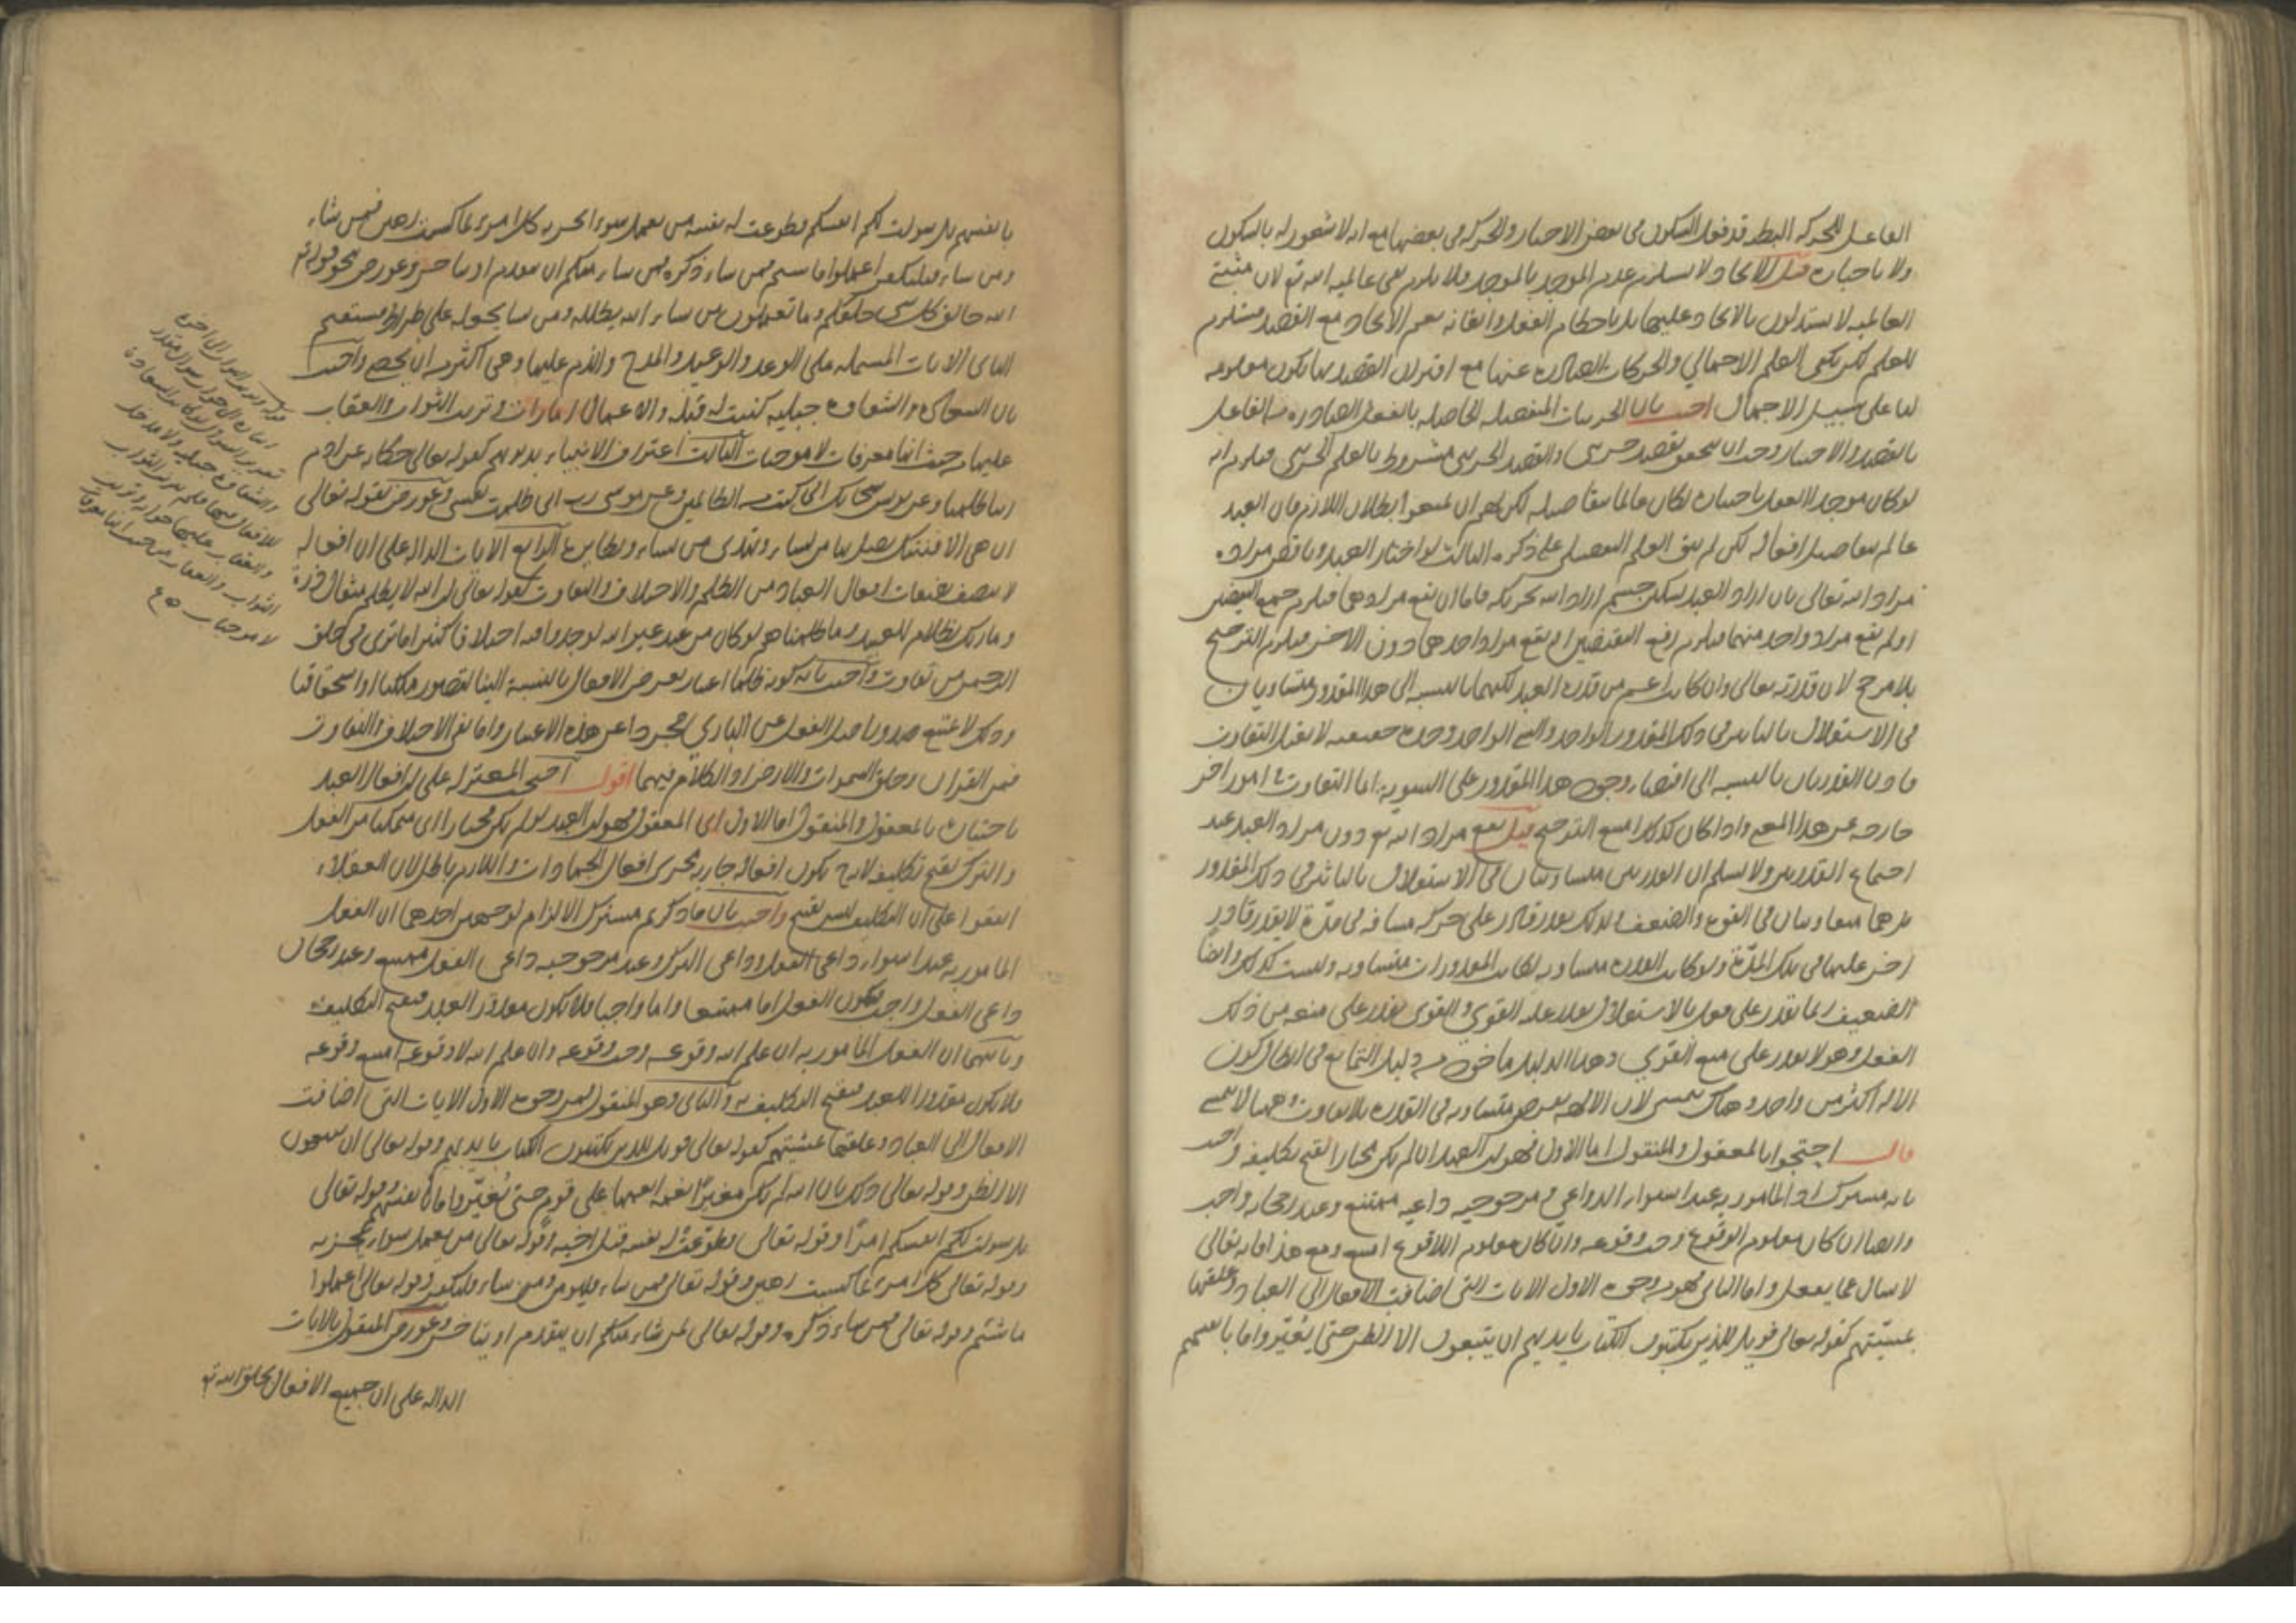 الفاعل للحركة البطيئة قد فعل السكون في بعض الاحيان والحركة في بعضها مع انه لا شعور له بالسكون
ولا باختياره قيل الايجاد لا يستلزم علم الموجد بالموجد فلا يلزم نفي عالمية الله تع لان مثبتي
العالمية لا يستدلون بالايجاد عليها بل باحكام الفعل واتقانه نعم الايجاد مع القصد مستلزم
للعلم لكن يكفي العلم الاجمالي والحركات الصادرة عنها مع اقتران القصد بها تكون معلومة
لنا على سبيل الاجمال اجيب بان الجزئيات المنفصلة الحاصلة بالفعل الصادرة من الفاعل
بالقصد والاختيار وجب ان يتحقق بقصد جزئي والقصد الجزئي مشروط بالعلم الجزئي فيلزم انه
لو كان موجد الافعاله باختياره لكان عالما بتفاصيله لكن لهم ان يمنعوا بطلان اللازم فان العبد
عالم بتفاصيل افعاله لكن لم يبق العلم التفصيلي على ذكره الثالث لو اختار العبد وناقض مراده
مراد الله تعالى بان اراد العبد تسكين جسم اراد الله تحريكه فاما ان يقع مرادهما فيلزم جمع النقيضين
او لم يقع مراد واحد منهما فيلزم رفع النقيضين او يقع مراد احدهما دون الاخر فيلزم الترجيح
بلا مرجح لان قدرته تعالى وان كانت اعم من قدرة العبد لكنهما بالنسبة الى هذا المقدور متساويان
في الاستقلال بالتاثير في ذلك المقدور الواحد والشئ الواحد وحدة حقيقية لا يقبل التفاوت
فاذن القدرتان بالنسبة الى اقتضاء وجود هذا المقدور على السوية انما التفاوت في امور اخر
خارجة عن هذا المعنى واذا كان كذلك امتنع الترجيح قيل يقع مراد الله تع دون مراد العبد عند
اجتماع القدرتين ولا نسلم ان القدرتين متساويتان في الاستقلال بالتاثير في ذلك المقدور
بل هما متفاوتتان في القوة والضعف ولذلك يقدر قادر على حركة مسافة في مدة لا يقدر قادر
اخر عليها في تلك المدة ولو كانت القدرة متساوية لكانت المقدورات متساوية وليست كذلك وايضا
الضعيف ربما يقدر على فعل بالاستقلال يقدر عليه القوي والقوي يقدر على منعه من ذلك
الفعل وهو لا يقدر على منع القوي وهذا الدليل ماخوذ من دليل التمانع في ابطال كون
الاله اكثر من واحد وهناك يتمشى لان الالهة تفرض متساوية في القدرة بلا تفاوت وههنا لا يتمشى
قال احتجوا بالمعقول والمنقول اما الاول فهو ان العبد ان لم يكن مختارا لقبح تكليفه واجيب
بانه مشترك اذ المامور به عند استواء الدواعي ومرجوحية داعيه ممتنع وعند رجحانه واجب
وايضا ان كان معلوم الوقوع وجب وقوعه وان كان معلوم اللاوقوع امتنع ومع هذا فانه تعالى
لا يسال عما يفعل واما الثاني فهو من وجوه الاول الايات التي اضافت الافعال الى العباد وعلقتها
بمشيتهم كقوله تعالى فويل للذين يكتبون الكتاب بايديهم ان يتبعون الا الظن حتى يغيروا ما بانفسهم
بانفسهم بل سولت لكم انفسكم فطوعت له نفسه من يعمل سوءا يجز به كل امرئ بما كسب رهين فمن شاء
ومن شاء فليكفر اعملوا ما شئتم فمن شاء ذكره لمن شاء منكم ان يتقدم او يتاخر وعورض بنحو قوله تع
الله خالق كل شئ خلقكم وما تعملون من يشاء الله يضلله ومن يشا يجعله على صراط مستقيم
الثاني الايات المشتملة على الوعد والوعيد والمدح والذم عليها وهي اكثر من ان تحصى واجيب
بان السعادة والشقاوة جبلية كتبت له قبله والاعمال امارات وترتب الثواب والعقاب
عليها من حيث انها معرفات لا موجبات الثالث اعتراف الانبياء بذنوبهم كقوله تعالى حكاية عن ادم
ربنا ظلمنا وعن يونس سبحانك اني كنت من الظالمين وعن موسى رب اني ظلمت نفسي وعورض بقوله تعالى
ان هي الا فتنتك تضل بها من تشاء وتهدي من تشاء ونظايرها الرابع الايات الدالة على ان افعاله
لا يتصف بصفات افعال العباد من الظلم والاختلاف والتفاوت كقوله تعالى ان الله لا يظلم مثقال ذرة
وما ربك بظلام للعبيد وما ظلمناهم لو كان من عند غير الله لوجدوا فيه اختلافا كثيرا ما ترى في خلق
الرحمن من تفاوت واجيب بانه كونه ظلما اعتبار يعرض الافعال بالنسبة الينا لقصور ملكنا او استحقاقنا
وذلك لا يمنع صدور اصل الفعل عن الباري مجردا عن هذه الاعتبار واما نفي الاختلاف والتفاوت
فمن القران وخلق السموات والارض اذ الكلام فيهما اقول احتجت المعتزلة على ان افعال العبد
باختياره بالمعقول والمنقول اما الاول اي المعقول فهو ان العبد لو لم يكن مختارا اي متمكنا من الفعل
والترك لقبح تكليفه لانه ح تكون افعاله جارية مجرى افعال الجمادات واللازم باطل لان العقلاء
اتفقوا على ان التكليف ليس بقبيح واجيب بان ما ذكرتم مشترك الالزام لوجهين احدهما ان الفعل
المامور به عند استواء داعي الفعل وداعي الترك وعند مرجوحية داعي الفعل ممتنع وعند رجحان
داعي الفعل واجب فيكون الفعل اما ممتنعا واما واجبا فلا يكون مقدور العبد فيقبح التكليف
وثانيهما ان الفعل المامور به ان علم الله وقوعه وجب وقوعه وان علم الله لا وقوعه امتنع وقوعه
فلا يكون مقدورا للعبد فيقبح التكليف به والثاني وهو المنقول فمن وجوه الاول الايات التي اضافت
الافعال الى العباد وعلقتها بمشيتهم كقوله تعالى فويل للذين يكتبون الكتاب بايديهم وقوله تعالى ان يتبعون
الا الظن وقوله تعالى ذلك بان الله لم يك مغيرا نعمة انعمها على قوم حتى يغيروا ما بانفسهم وقوله تعالى
بل سولت لكم انفسكم امرا وقوله تعالى فطوعت له نفسه قتل اخيه وقوله تعالى من يعمل سوءا يجز به
وقوله تعالى كل امرئ بما كسب رهين وقوله تعالى فمن شاء فليومن ومن شاء فليكفر وقوله تعالى اعملوا
ما شئتم وقوله تعالى فمن شاء ذكره وقوله تعالى لمن شاء منكم ان يتقدم او يتاخر وعورض المنقول بالايات
الدالة على ان جميع الافعال بخلق الله تع
والشقاوة جبلية ولا مدخل
للافعال فيها فلم يترتب الثواب
والعقاب عليها
الثواب والعقاب من حيث انها معرفات
لا موجبات